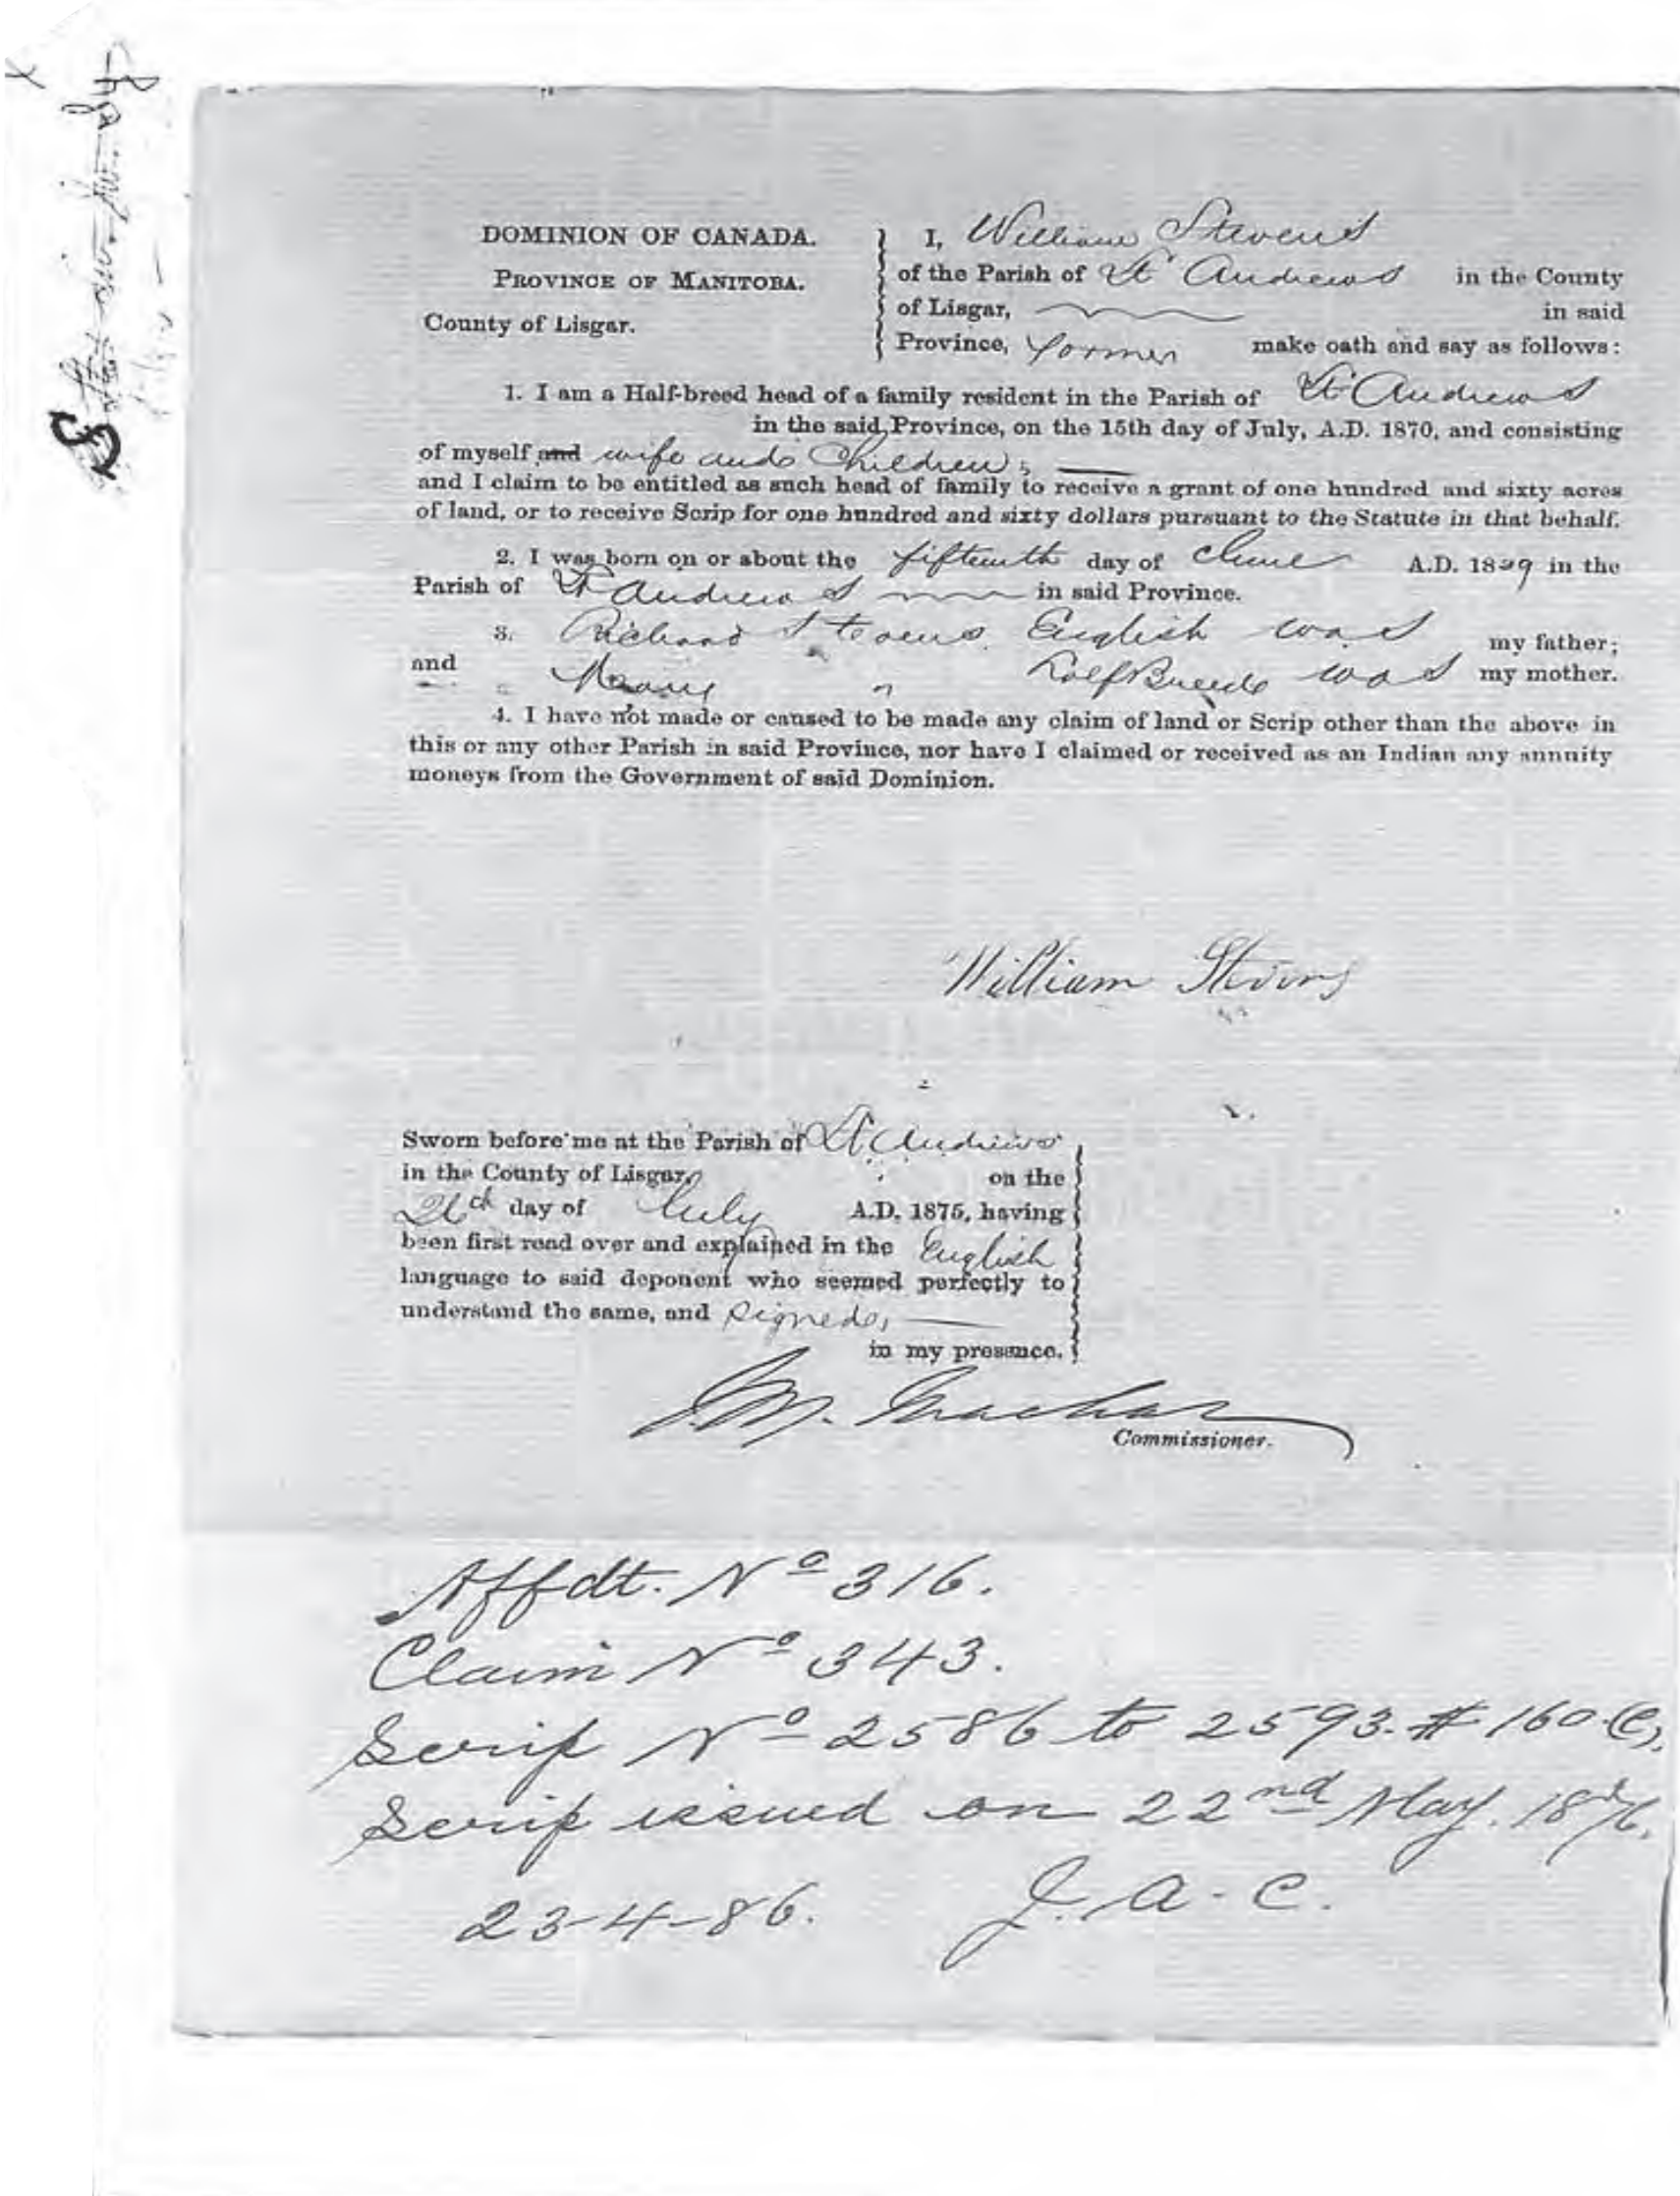 DOMINION OF CANADA.
PROVINCE OF MANITOBA.
County of Lisgar.
I, William Stevens
of the Parish of St Andrews in the County
of Lisgar, in said
Province, Farmer make oath and say as follows:
1. I am a Half-breed head of a family resident in the Parish of St Andrews
in the said Province, on the 15th day of July, A.D. 1870, and consisting
of myself and wife and Children,
and I claim to be entitled as such head of family to receive a grant of one hundred and sixty acres
of land, or to receive Scrip for one hundred and sixty dollars pursuant to the Statute in that behalf.
2. I was born on or about the fifteenth day of June A.D. 1829 in the
Parish of St Andrews in said Province.
3. Richard Stevens English was my father;
and Mary " Half Breed was my mother.
4. I have not made or caused to be made any claim of land or Scrip other than the above in
this or any other Parish in said Province, nor have I claimed or received as an Indian any annuity
moneys from the Government of said Dominion.
William Stevens
Sworn before me at the Parish of St Andrews
in the County of Lisgar, on the
day of July A.D. 1875, having
been first read over and explained in the English
language to said deponent who seemed perfectly to
understand the same, and signed,
in my presence.
J.M. Machar
Commissioner.
Affdt. Nº 316.
Claim Nº 343.
Scrip Nº 2586 to 2593. # 160
Scrip issued on 22nd May. 1876.
23-4-86. J. A. C.